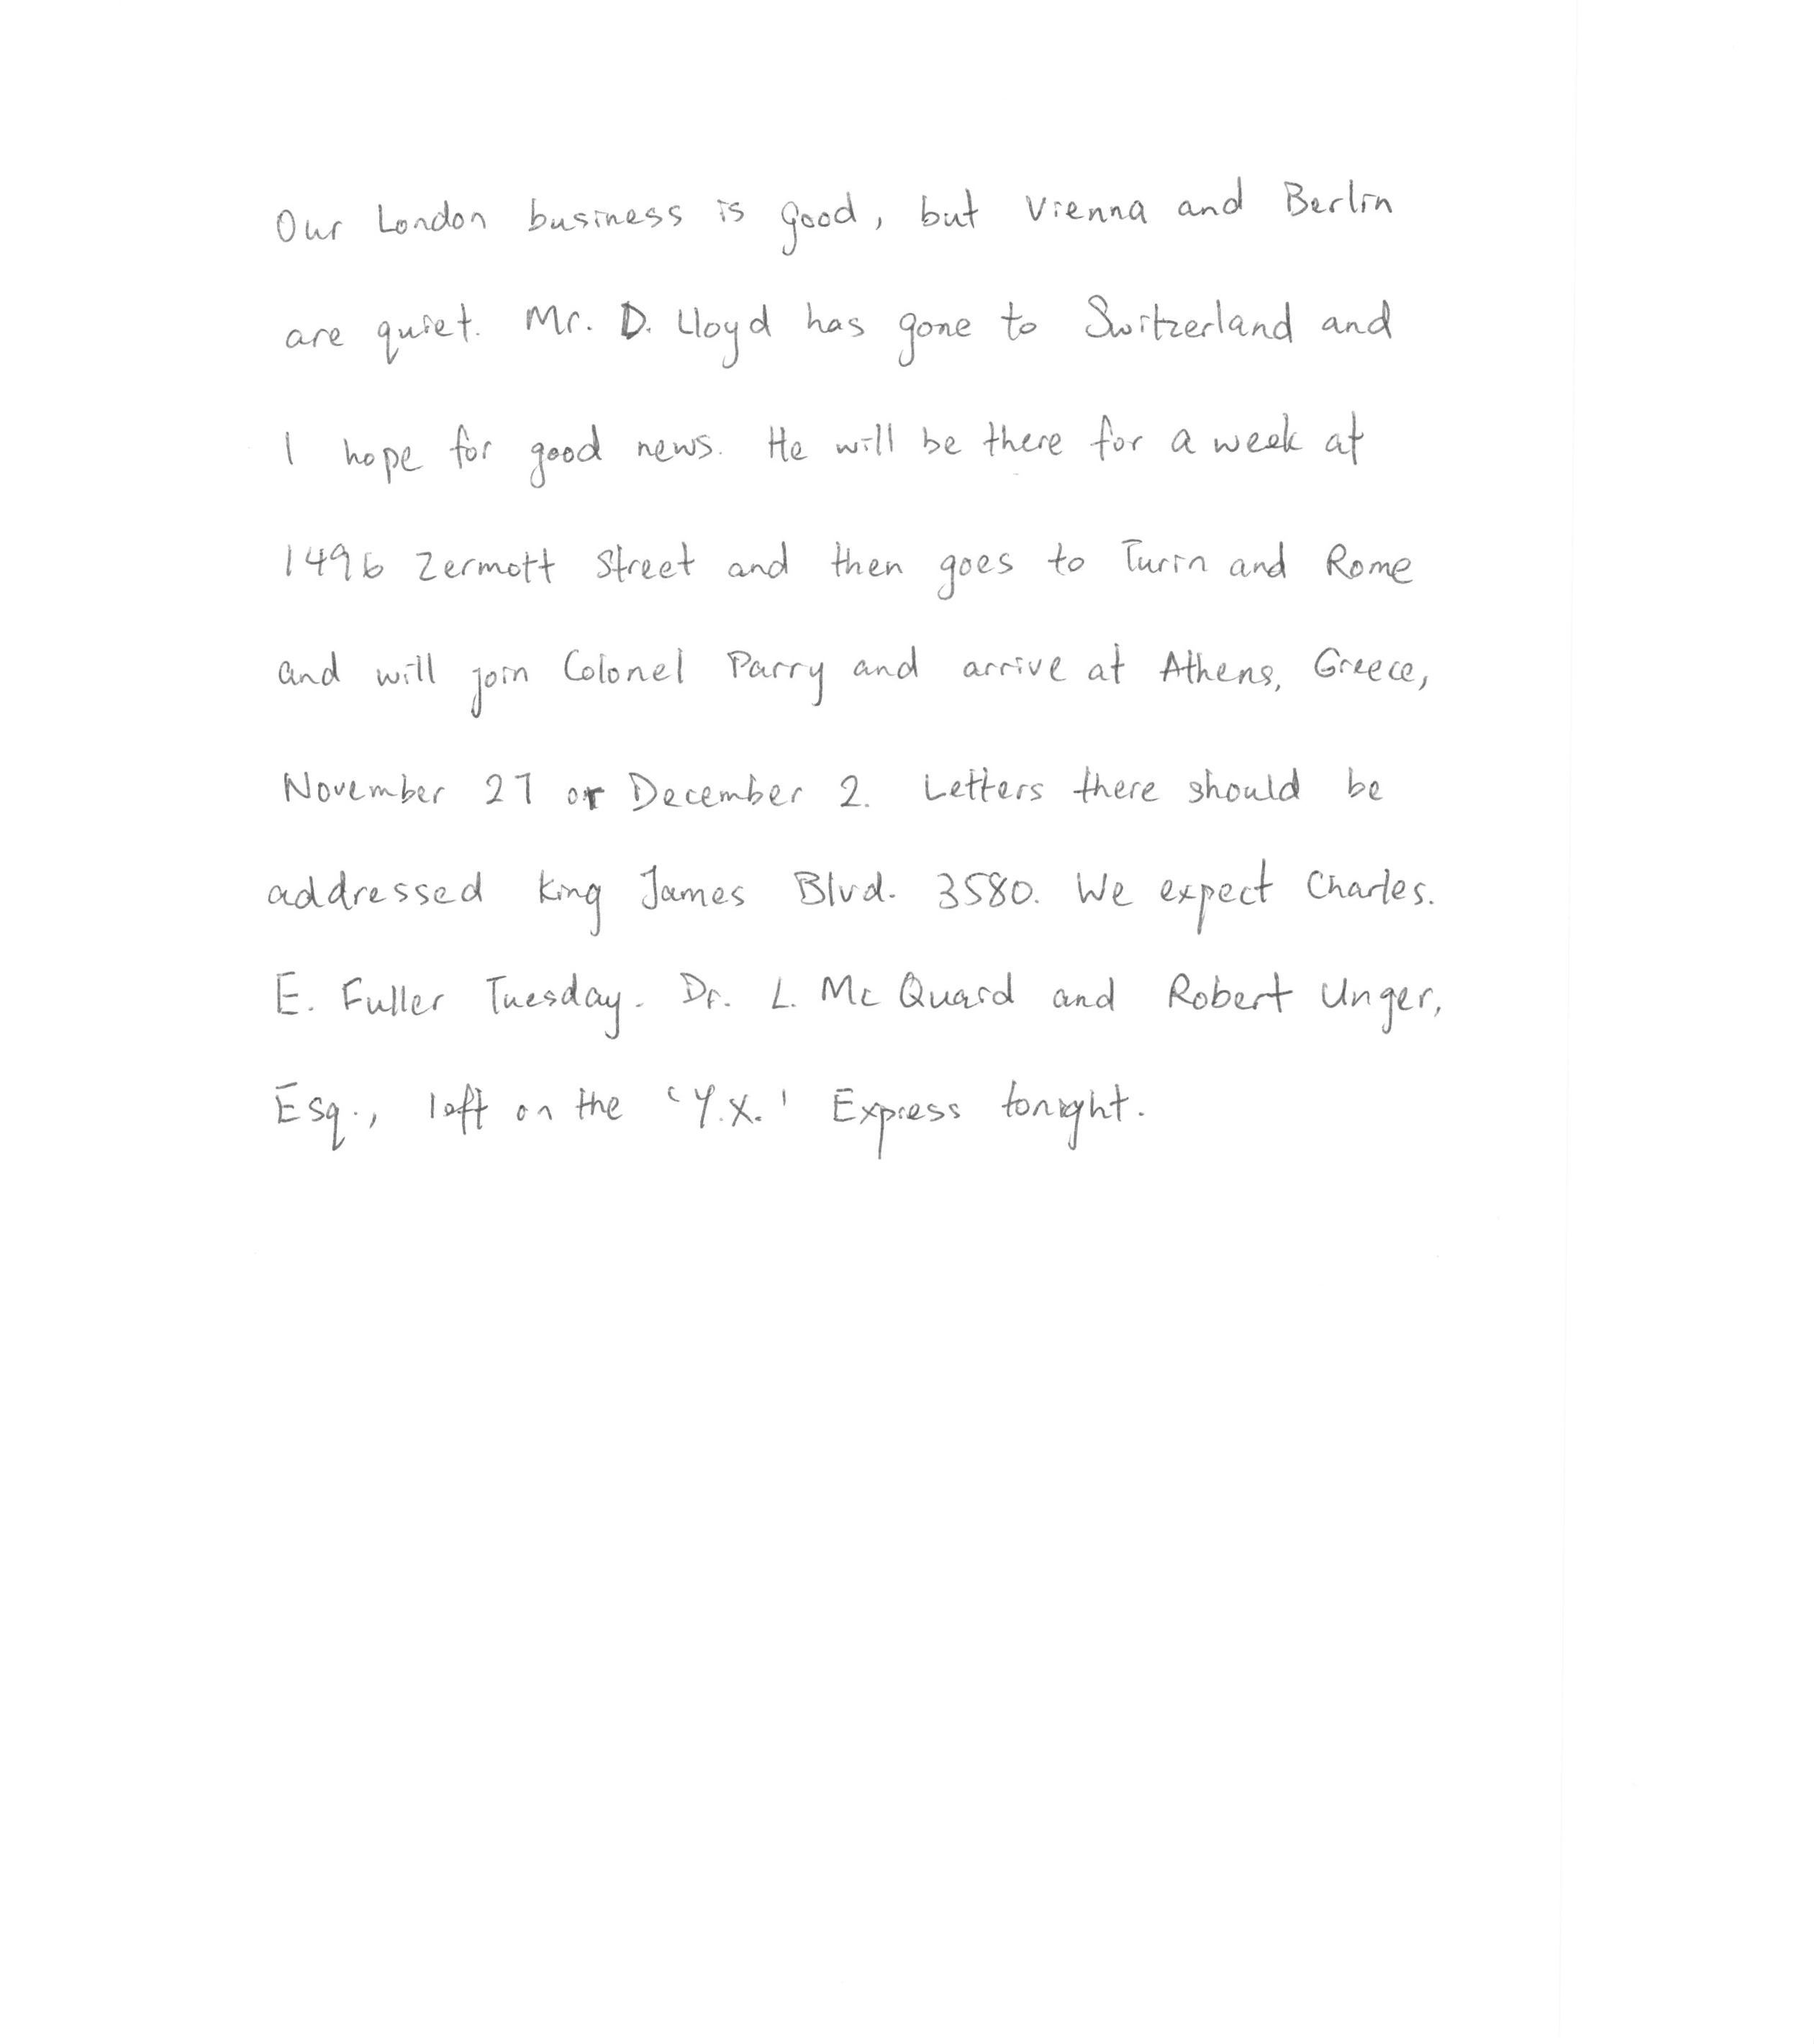 Our London business is good, but Vienna and Berlin
are quiet. Mr. D. Lloyd has gone to Switzerland and
I hope for good news. He will be there for a week at
1496 Zermott Street and then goes to Turin and Rome
and will join Colonel Parry and arrive at Athens, Greece,
November 27 or December 2. Letters there should be
addressed King James Blvd. 3580. We expect Charles.
E. Fuller Tuesday. Dr. L. Mc Quard and Robert Unger,
Esq., left on the 'Y.X.' Express tonight.